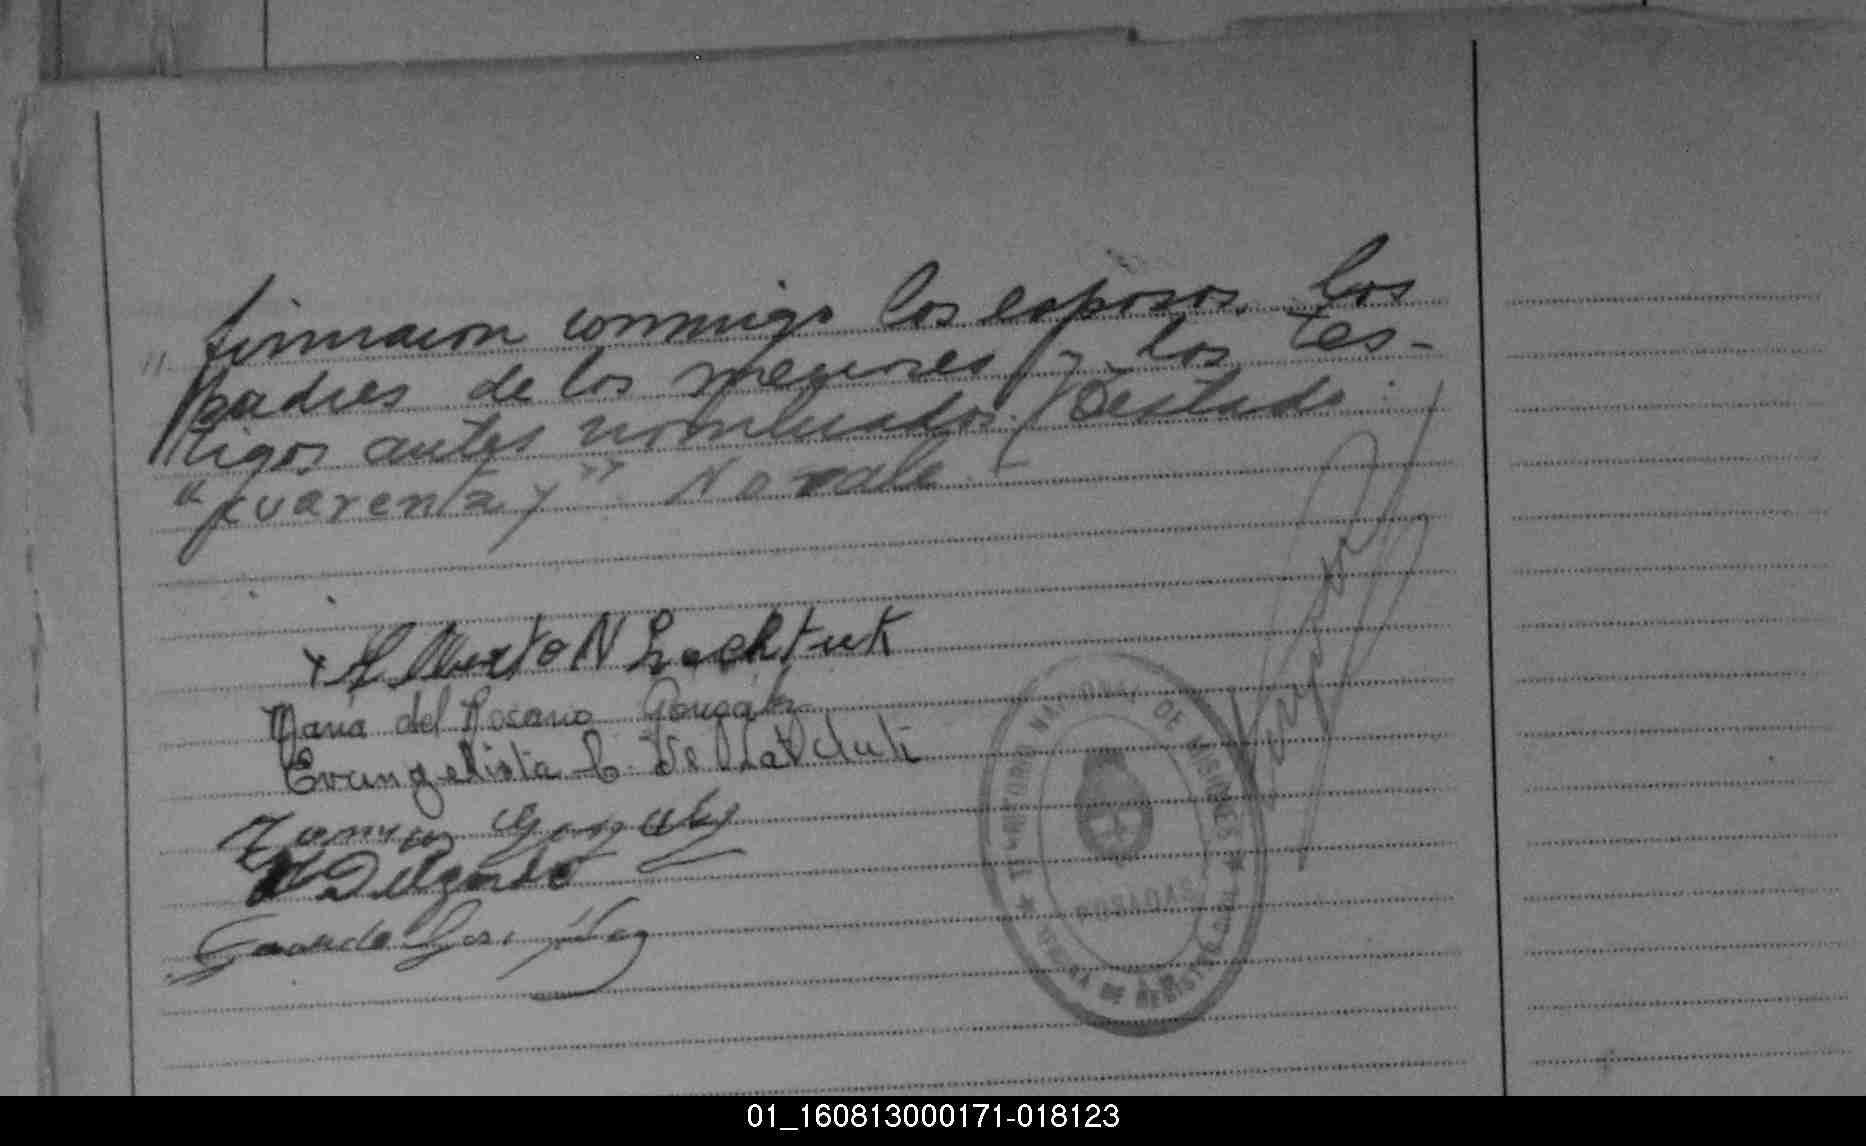 firmaron conmigo los esposos, los
padres de los menores y los tes-
tigos antes nombrados. Testado:
"cuarenta y" No vale.
Alberto N
María del Rosario González
Evangelista C. de
González
Delgado
TERRITORIO NACIONAL DE MISIONES
POSADAS
OFICINA DE REGISTRO CIVIL
01_160813000171-018123